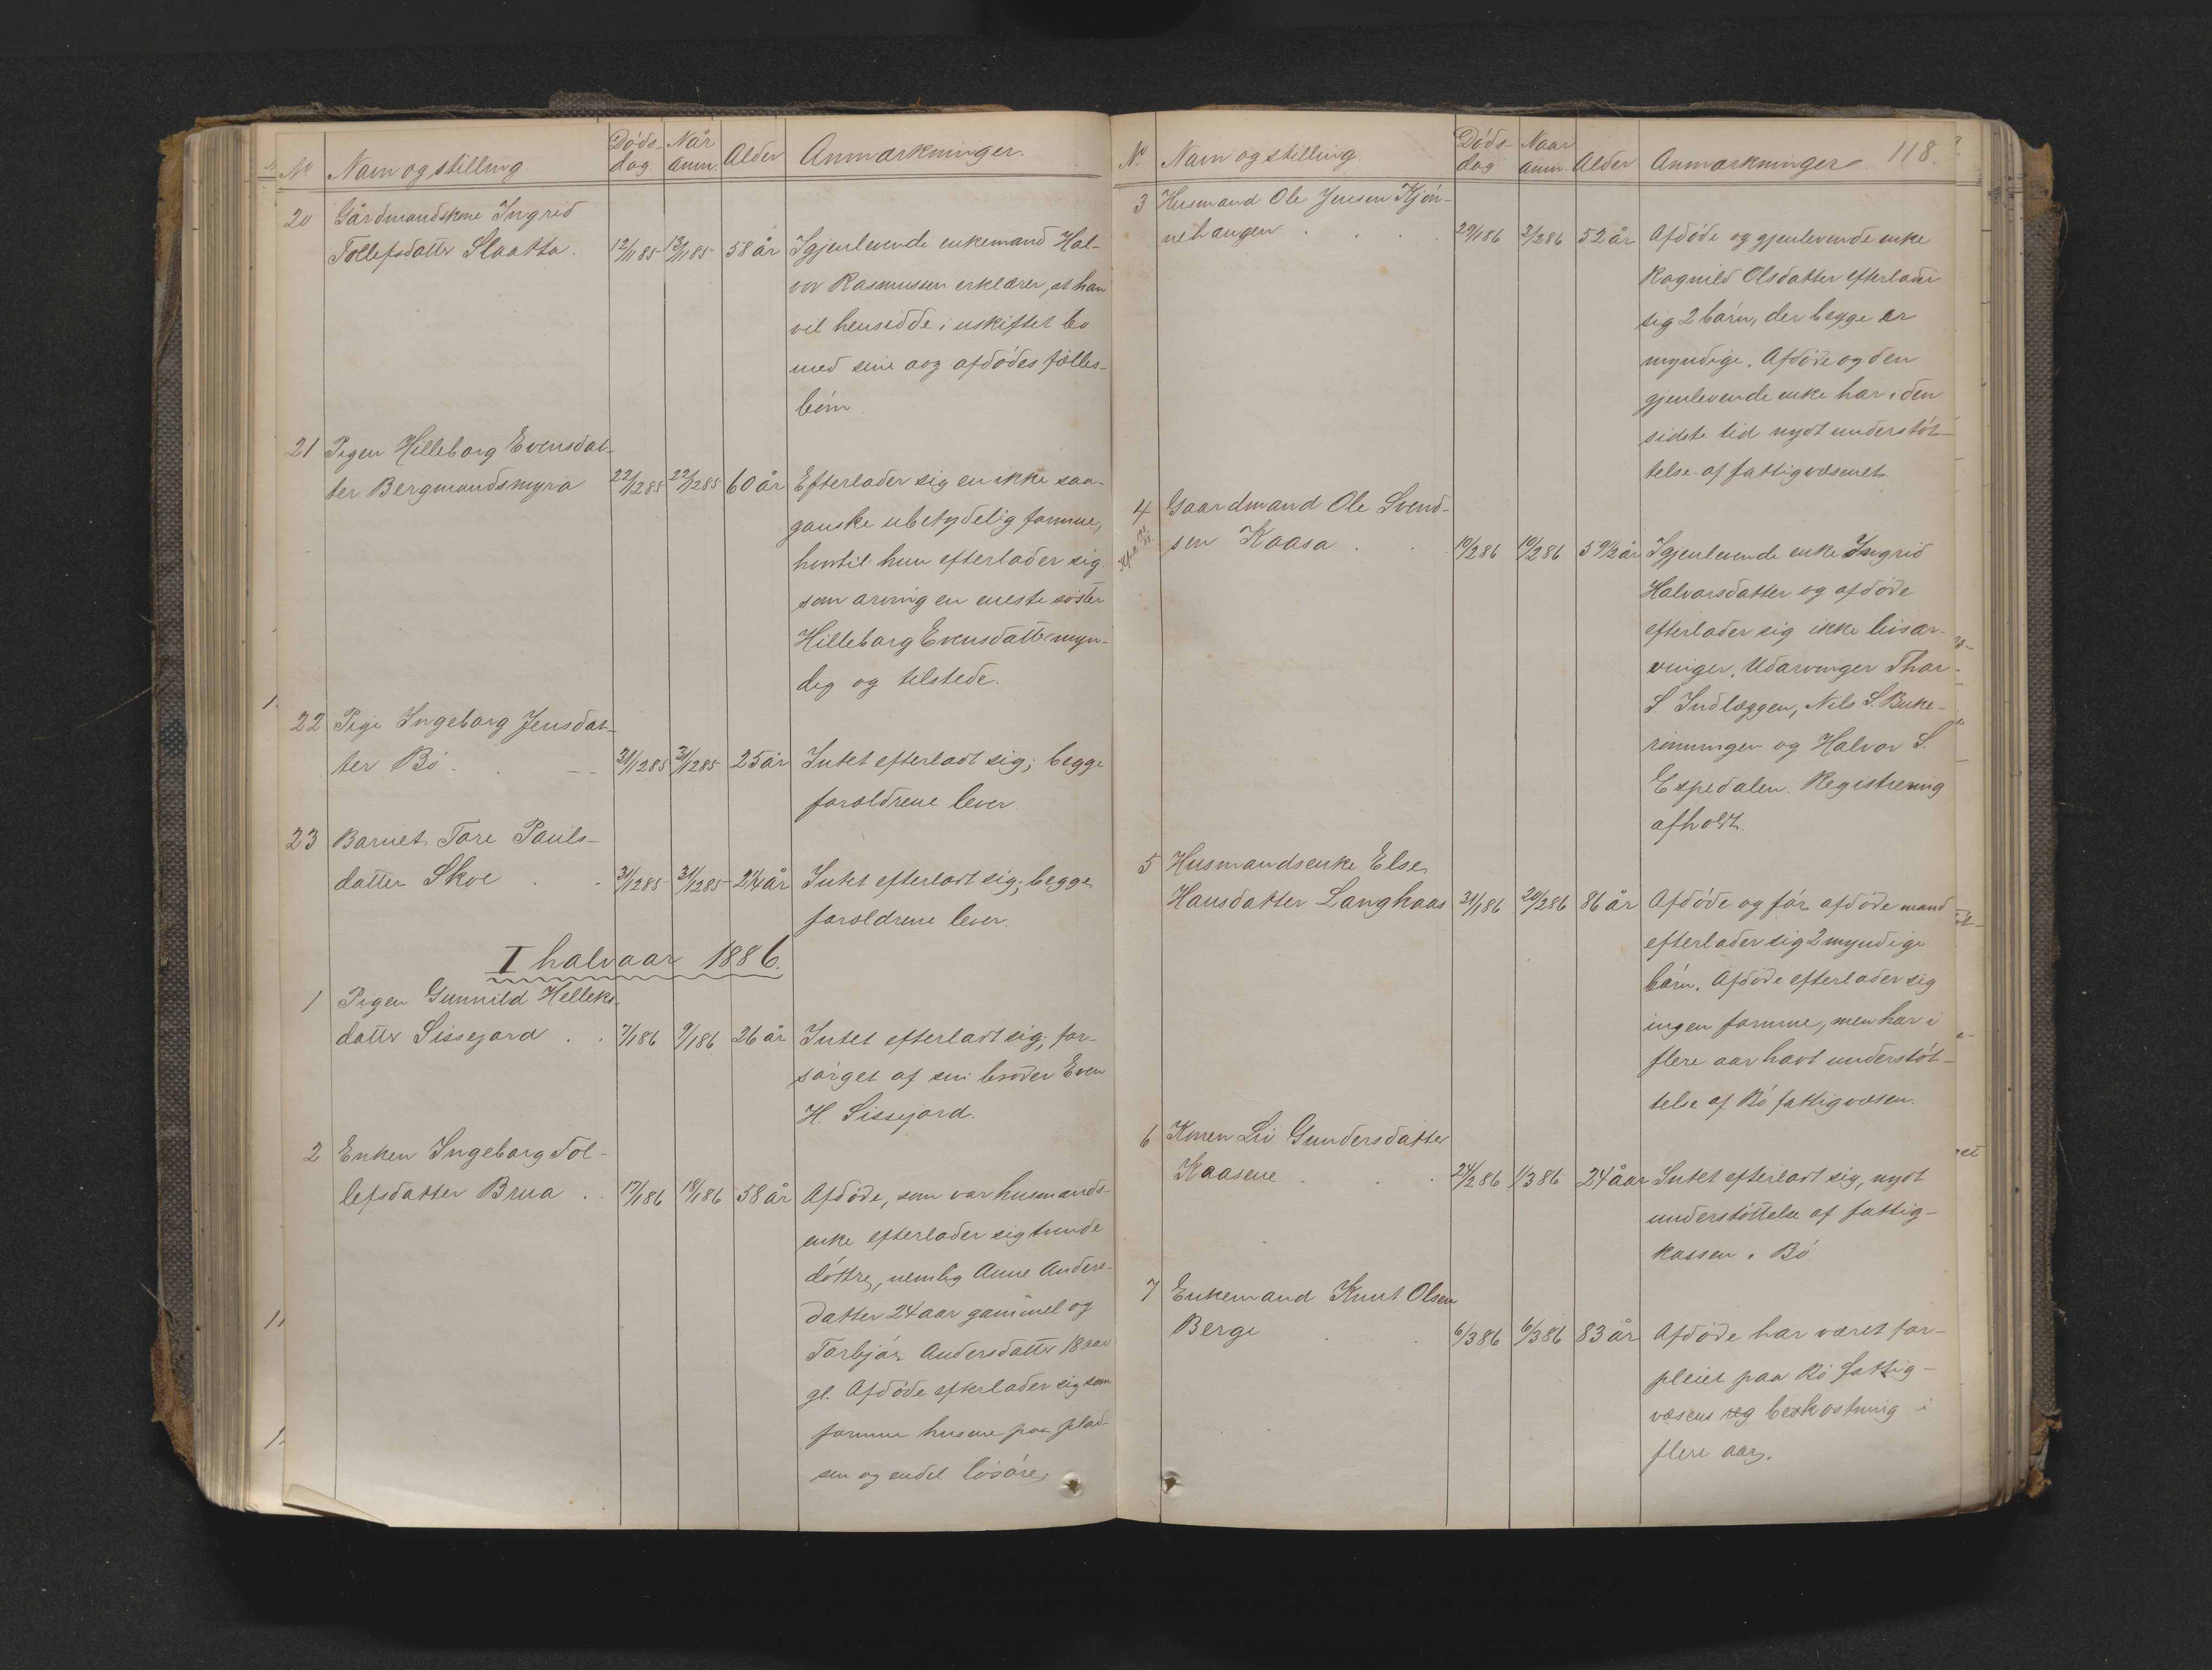 No Navn og stilling Døds-dag Når anm. Alder Anmærkninger.
20 Gårdmandskone Ingrid
Tollefsdatter Slaatta. 12/1185 13/1185 58 år Igjenlevende enkemand Hal-
vor Rasmussen erklærer, at han
vil hensidde i uskiftet bo
med sine og afdødes fælles-
børn.
21 Pigen Hilleborg Evensdat-
ter Bergmandsmyra 22/1285 22/1285 60 år Efterlader sig en ikke saa-
ganske ubetydelig formue,
hertil hun efterlader sig
som arving en eneste søster
Hilleborg Evensdatter myn-
dig og tilstede.
22 Pige Ingeborg Jensdat-
ter Bø. 31/1285 31/1285 25 år Intet efterladt sig; begge
forældrene lever.
23 Barnet Tore Pauls-
datter Skoe . . 31/1285 31/1285 2 1/4 år Intet efterladt sig; begge
forældrene lever.
I halvaar 1886.
1 Pigen Gunnild Helleks-
datter Sissejord . . 7/186 9/186 26 år Intet efterladt sig, for-
sørget af sin broder Even
H. Sissejord.
2 Enken Ingeborg Tol-
lefsdatter Brua . . 17/186 18/186 58 år Afdøde, som var husmands-
enke efterlader sig tvende
døttre, nemlig Anne Anders-
datter 24 aar gammel og
Torbjør Andersdatter 18 aar
gl. Afdøde efterlader sig som
formue husene paa plad-
sen og endel løsøre.
No Navn og stilling Døds-dag Naar anm. Alder Anmærkninger. 118.
3 Husmand Ole Jensen Kjøn-
nehaugen . . . . 29/186 3/286 52 år Afdøde og gjenlevende enke
Ragnild Olsdatter efterlader
sig 2 børn, der begge er
myndige. Afdøde og den
gjenlevende enke har i den
sidste tid nydt understøt-
telse af fattigvæsenet.
4 Gaardmand Ole Svend-
sen Kaasa . . . 10/286 10/286 59 1/2 år Igjenlevende enke Ingrid
Halvorsdatter og afdøde
efterlader sig ikke livsar-
vinger. Udarvinger Thor
S. Indlæggen, Nils S. Buke-
rinningen og Halvor S.
Espedalen. Registrering
afholdt.
5 Husmandsenke Else
Hansdatter Langkaas 31/186 20/286 86 år Afdøde og før afdøde mand
efterlader sig 2 myndige
børn. Afdøde efterlader sig
ingen formue, men har i
flere aar havt understøt-
telse af Bø fattigvæsen.
6 Konen Liv Gundersdatter
Kaasene . . 24/286 1/386 24 åar Intet efterladt sig, nydt
understøttelse af fattig-
kassen i Bø
7 Enkemand Knut Olsen
Berge . . 6/386 6/386 83 år Afdøde har været for-
pleiet paa Bø fattig-
væsens bekostning i
flere aar.